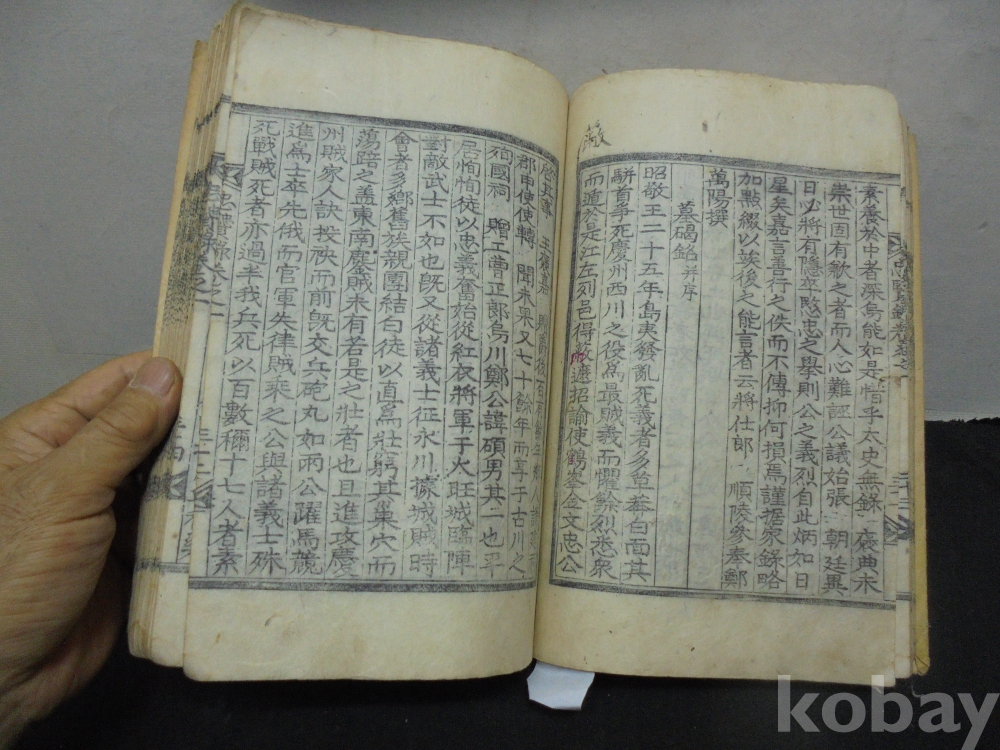 素養於中者深烏能如是惜乎太史無錄褒典未
崇世固有欷之者而人心難誣公議始張朝廷異
日必將有隱卒愍忠之擧則公之義烈自此炳如日
星矣嘉言善行之佚而不傳抑何損焉謹据家錄略
加點綴以竢後之能言者云將仕郎 順陵參奉鄭
萬陽撰
墓碣銘 并序
昭敬王二十五年島夷發亂死義者多草莽白面其
騈首爭死慶州西川之役爲最賊義而懼餘烈悉衆
而遁於是江左列邑得敉遮招諭使鶴峯金文忠公
啓其事
郡申使使轉 聞未果又七十餘年而享于古川之
祠國祠 贈工曹正郎烏川鄭公諱碩男其一也平
居恂恂徒以忠義奮始從紅衣將軍于火旺城臨陣
對敵武士不如也旣又從諸義士征永川據城賊時
會者多鄕舊族親團結白徒以直爲壯窮其巢穴而
蕩踣之盖東南鏖賊未有若是之壯者也且進攻慶
州賊家人訣投袂而前旣交兵砲丸如雨公躍馬競
進爲士卒先俄而官軍失律賊乘之公與諸義士殊
死戰賊死者亦過半我兵死以百數稱十七人者素
kobay